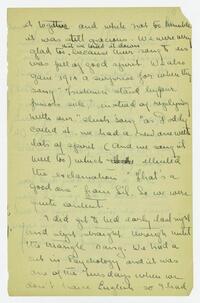 it together and while not be humble
it was still gracious. We were very
and we tried it down
glad to, because our song to us
was full of good spirit. We also
gave 1910 a surprise for when they
sang "Frederick stand before
juniors all" instead of replying
with our "slush song" as Peddy
called it, we had a new one with
lots of spirit (and we sang it
well too) which elicited
the exclamation "That's a
good one" from Sil. So we were
quite content.
I did get to bed early last night
and slept straight through until
the triangle rang. We had a
cut in Psychology and it was
one of the Tuesdays when we
don't have English so I had